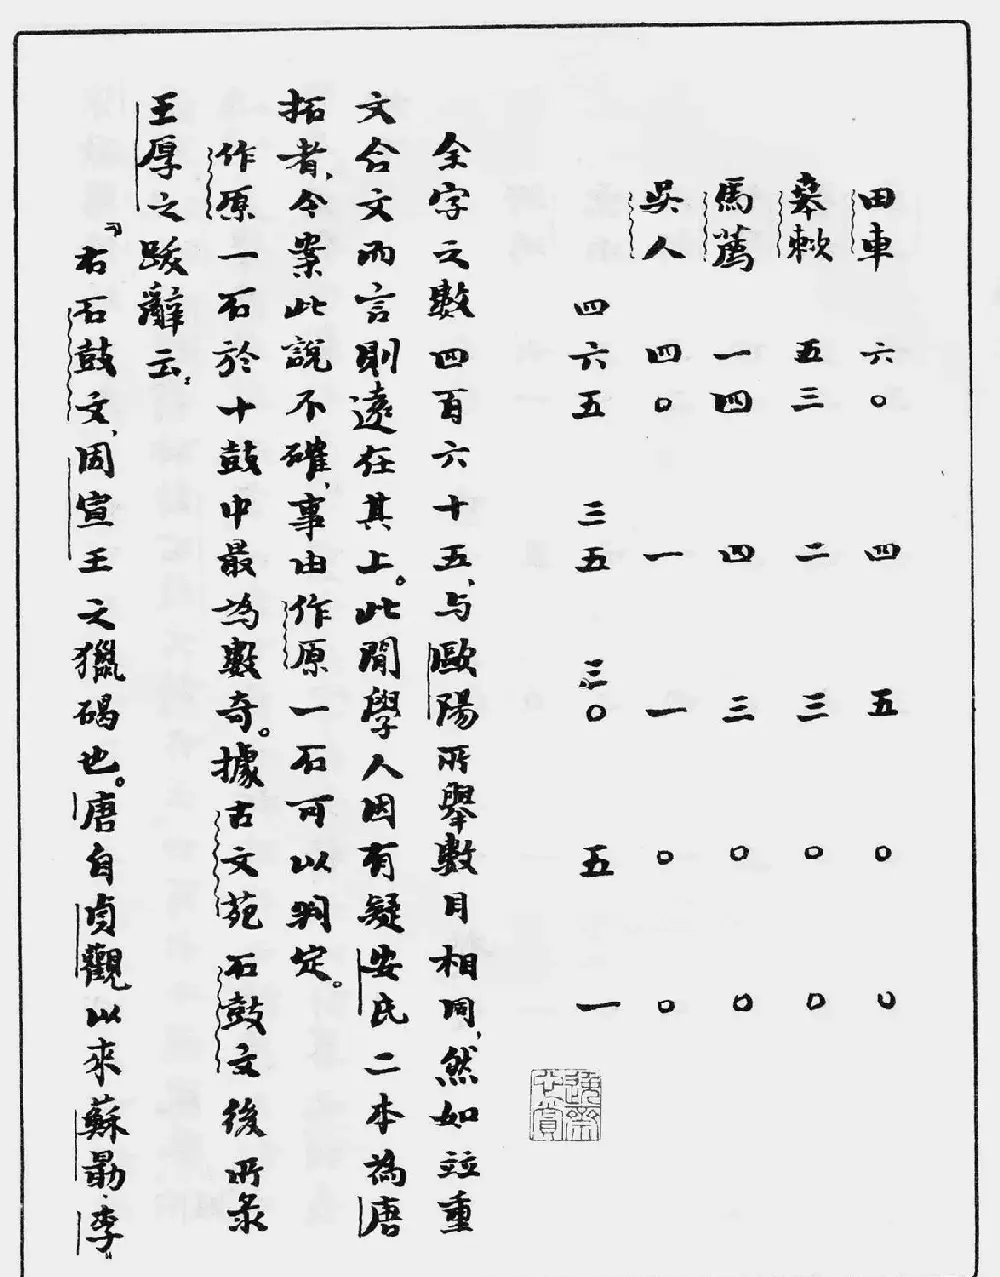 田車　六〇　四　五　〇　〇
𦍒敕　五三　二　三　〇　〇
馬薦　一四　四　三　〇　〇
吳人　四〇　一　一　〇　〇
四六五　三五　三〇　五　一
全字之數四百六十五、与歐陽所舉數目相同、然如竝重
文合文而言則遠在其上。此間學人因有疑安氏二本為唐
拓者、今案此說不確、事由作原一石可以判定。
作原一石於十鼓中最為數奇。據古文苑石鼓文後所录
王厚之跋辭云、
『右石鼓文、周宣王之獵碣也。唐自貞觀以來蘇勗・李